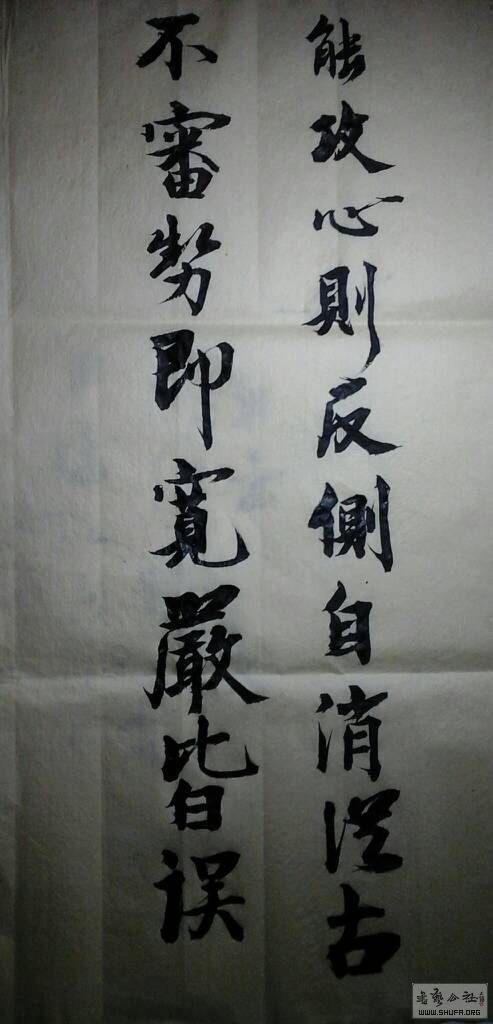 能攻心則反側自消從古
不審勢即寬嚴皆误
書藝公社
WWW.SHUFA.ORG